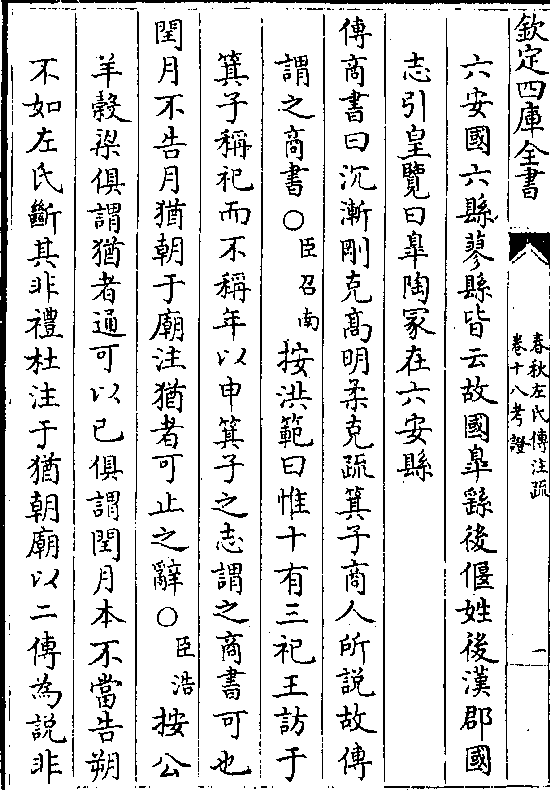 欽定四庫全書
春秋左氏傳注疏
卷十八考證
一
六安國六縣蓼縣皆云故國臯繇後偃姓後漢郡國
志引皇覽曰臯陶冢在六安縣
傳商書曰沉漸剛克高明柔克疏箕子商人所說故傳
謂之商書○臣召南按洪範曰惟十有三祀王訪于
箕子稱祀而不稱年以申箕子之志謂之商書可也
閏月不告月猶朝于廟注猶者可止之辭○臣浩按公
羊穀梁俱謂猶者通可以已俱謂閏月本不當告朔
不如左氏斷其非禮杜注于猶朝廟以二傳為說非